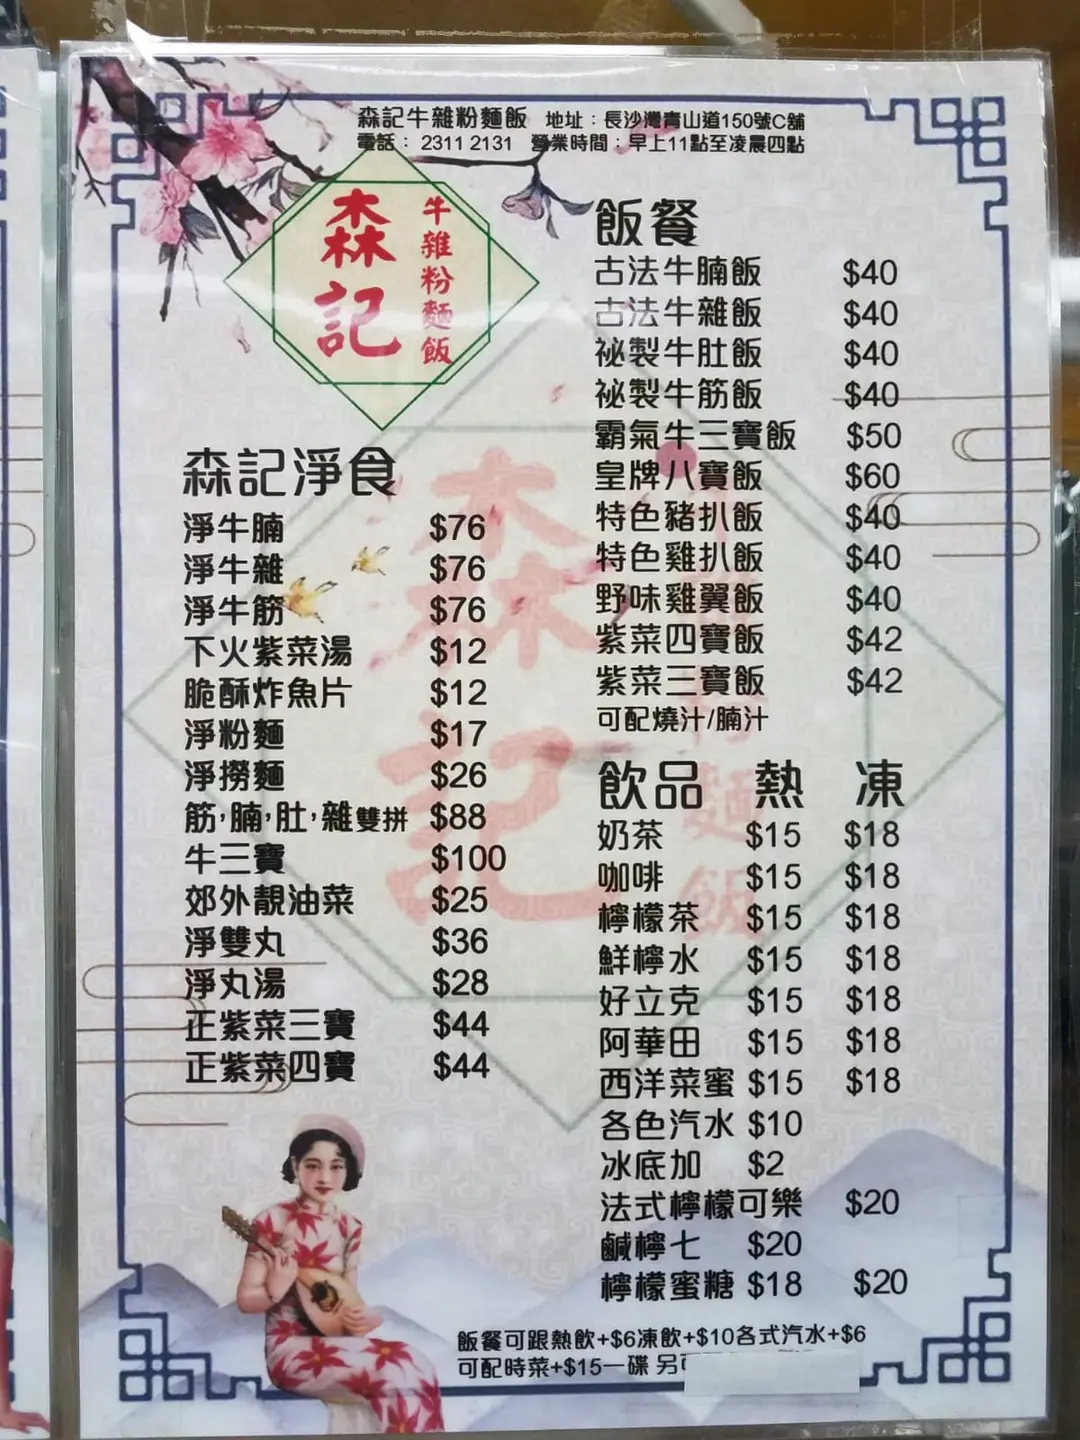 森記牛雜粉麵飯 地址：長沙灣青山道150號C舖
電話： 2311 2131 營業時間：早上11點至凌晨四點
森記
牛雜粉麵飯
森記淨食
淨牛腩 $76
淨牛雜 $76
淨牛筋 $76
下火紫菜湯 $12
脆酥炸魚片 $12
淨粉麵 $17
淨撈麵 $26
筋，腩，肚，雜雙拼 $88
牛三寶 $100
郊外靚油菜 $25
淨雙丸 $36
淨丸湯 $28
正紫菜三寶 $44
正紫菜四寶 $44
飯餐
古法牛腩飯 $40
古法牛雜飯 $40
祕製牛肚飯 $40
祕製牛筋飯 $40
霸氣牛三寶飯 $50
皇牌八寶飯 $60
特色豬扒飯 $40
特色雞扒飯 $40
野味雞翼飯 $40
紫菜四寶飯 $42
紫菜三寶飯 $42
可配燒汁/腩汁
飲品 熱 凍
奶茶 $15 $18
咖啡 $15 $18
檸檬茶 $15 $18
鮮檸水 $15 $18
好立克 $15 $18
阿華田 $15 $18
西洋菜蜜 $15 $18
各色汽水 $10
冰底加 $2
法式檸檬可樂 $20
鹹檸七 $20
檸檬蜜糖 $18 $20
飯餐可跟熱飲+$6凍飲+$10各式汽水+$6
可配時菜+$15一碟 另可
森記